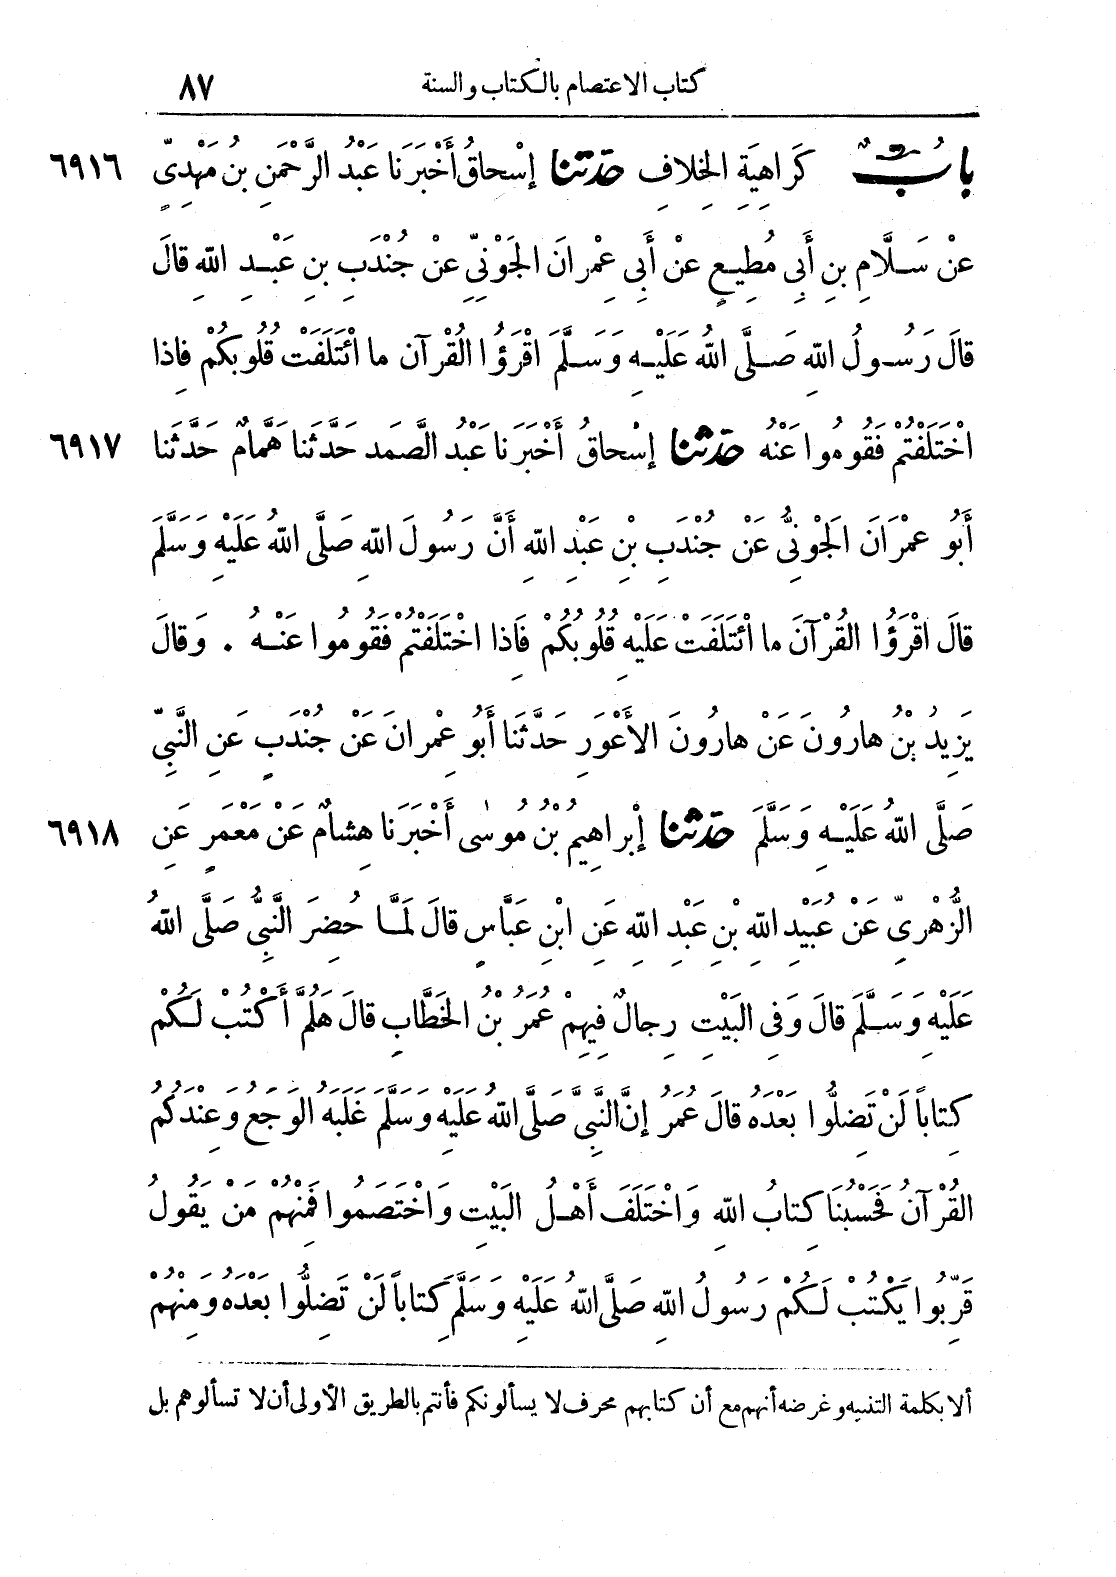 كتاب الاعتصام بالكتاب والسنة ٨٧
بابٌ كَرَاهِيَةِ الخِلافِ حَدَّثَنَا إِسْحاقُ أَخْبَرَنا عَبْدُ الرَّحْمَنِ بنُ مَهْدِيٍّ ٦٩١٦
عنْ سَلَّامِ بنِ أَبِى مُطِيعٍ عنْ أَبِى عِمْرانَ الجَوْنِيِّ عنْ جُنْدَبِ بنِ عَبْدِ اللهِ قالَ
قالَ رَسُولُ اللهِ صَلَّى اللهُ عَلَيْهِ وَسَلَّمَ اقْرَؤُا القُرْآنَ ما ائْتَلَفَتْ قُلُوبُكُمْ فاذا
اخْتَلَفْتُمْ فَقُومُوا عَنْهُ حَدَّثَنَا إِسْحاقُ أَخْبَرَنا عَبْدُ الصَّمَدِ حَدَّثَنا هَمَّامٌ حَدَّثَنا ٦٩١٧
أَبُو عِمْرَانَ الجَوْنِىُّ عَنْ جُنْدَبِ بْنِ عَبْدِ اللهِ أَنَّ رَسُولَ اللهِ صَلَّى اللهُ عَلَيْهِ وَسَلَّمَ
قالَ اقْرَؤُا القُرْآنَ ما ائْتَلَفَتْ عَلَيْهِ قُلُوبُكُمْ فَاِذا اخْتَلَفْتُمْ فَقُومُوا عَنْهُ . وَقالَ
يَزِيدُ بْنُ هارُونَ عَنْ هارُونَ الأَعْوَرِ حَدَّثَنا أَبُو عِمْرانَ عَنْ جُنْدَبٍ عَنِ النَّبِيِّ
صَلَّى اللهُ عَلَيْهِ وَسَلَّمَ حَدَّثَنَا إِبْراهِيمُ بْنُ مُوسٰى أَخْبَرَنا هِشامٌ عَنْ مَعْمَرٍ عَنِ ٦٩١٨
الزُّهْرِيِّ عَنْ عُبَيْدِ اللهِ بْنِ عَبْدِ اللهِ عَنِ ابْنِ عَبَّاسٍ قالَ لَمَّا حُضِرَ النَّبِىُّ صَلَّى اللهُ
عَلَيْهِ وَسَلَّمَ قالَ وَفِى البَيْتِ رِجالٌ فِيهِمْ عُمَرُ بْنُ الخَطَّابِ قالَ هَلُمَّ أَكْتُبْ لَكُمْ
كِتاباً لَنْ تَضِلُّوا بَعْدَهُ قالَ عُمَرُ إِنَّ النَّبِىَّ صَلَّى اللهُ عَلَيْهِ وَسَلَّمَ غَلَبَهُ الوَجَعُ وَعِنْدَكُمُ
القُرْآنُ فَحَسْبُنَا كِتابُ اللهِ وَاخْتَلَفَ أَهْلُ البَيْتِ وَاخْتَصَمُوا فَمِنْهُمْ مَنْ يَقُولُ
قَرِّبُوا يَكْتُبْ لَكُمْ رَسُولُ اللهِ صَلَّى اللهُ عَلَيْهِ وَسَلَّمَ كِتاباً لَنْ تَضِلُّوا بَعْدَهُ وَمِنْهُمْ
ألا بكلمة التنبيه وغرضه أنهم مع أن كتابهم محرف لا يسألونكم فأنتم بالطريق الأولى أن لا تسألوهم بل